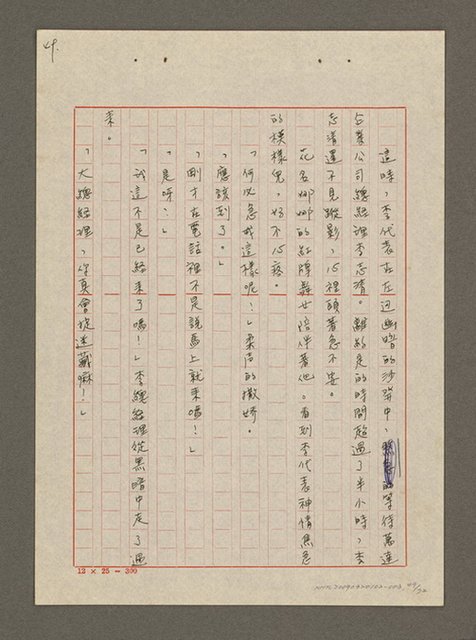 49.
這時，李代表正在迅幽暗的沙發中，等待萬達
企業公司總經理李志清。離約定的時間超過了半小時，李
志清還不見蹤影，心裡頭著急不安。
花名娜娜的紅牌舞女陪伴著他。看到李代表神情焦急
的模樣兒，好不心疼。
「何必急成這樣呢！」柔声的撒娇。
「應該到了。」
「剛才在電話裡不是說馬上就来嗎！」
「是呀！」
「說這不是已經来了嗎！」李總經理從黑暗中走了過
来。
「大總經理，你真會捉迷藏嘛！」
12 × 25 = 300